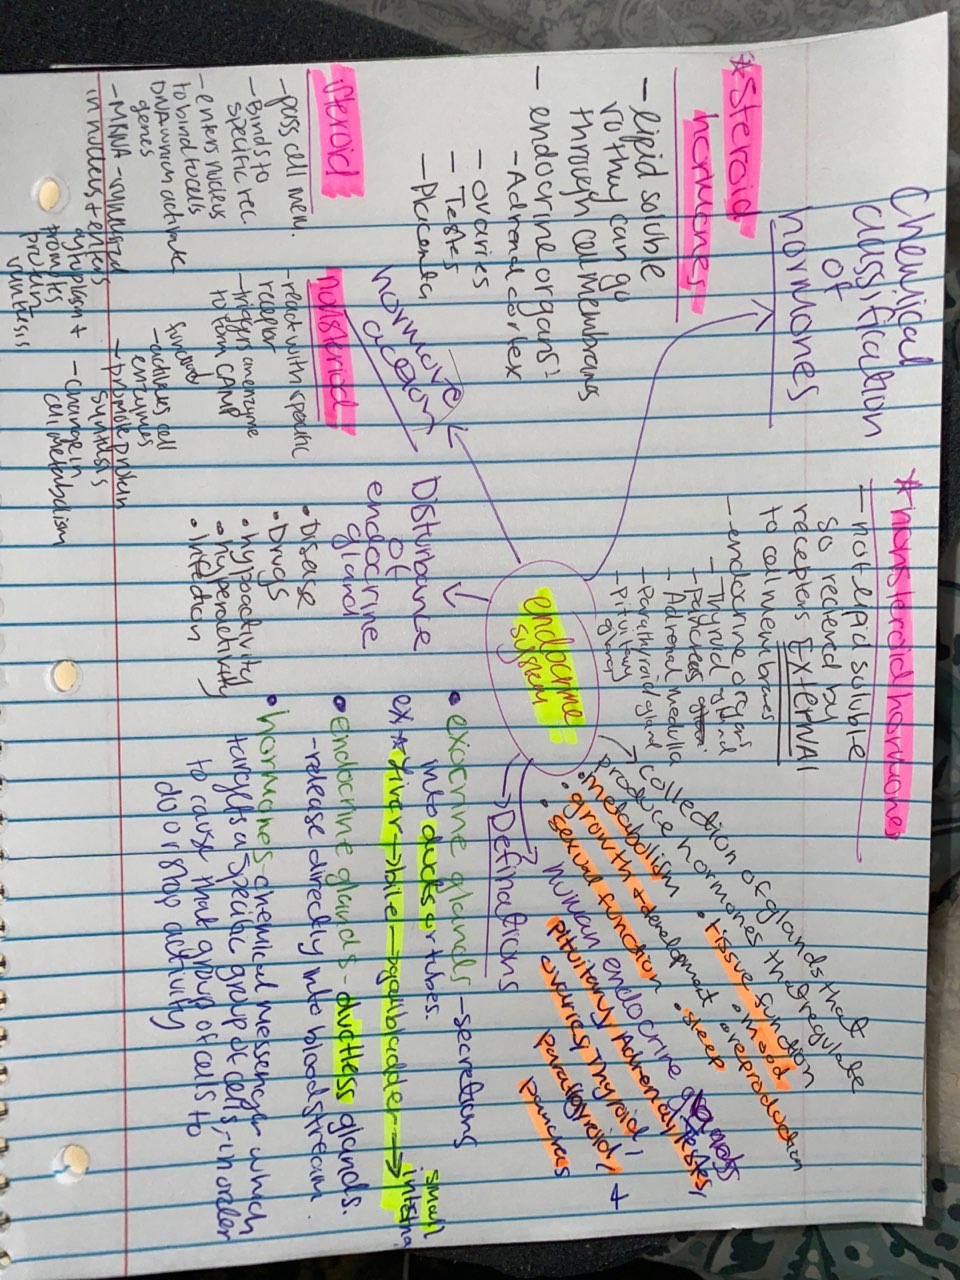 Chemical
classification
of
hormones
*Steroid
hormones
- lipid soluble
so they can go
through cell membranes
- endocrine organs:
- Adrenal cortex
- ovaries
- Testes
- Placenta
*nonsteroid hormones
- not lipid soluble
so recieved by
receptors EXTERNAl
to cell membranes
- endocrine organs
- Thyroid gland
- Pancreas
- Adrenal medulla
- Parathyroid gland
- Pituitary
gland
endocrine
system
collection of glands that
produce hormones that regulate
• metabolism
• tissue function
• growth + development
• mood
• sexual function
• sleep
• reproduction
human endocrine glands
pituitary, Adrenal, testes,
ovaries, Thyroid,
parathyroid, +
pancreas
→ Definations
• exocrine glands - secretions
into ducts or tubes.
ex * liver → bile → gallbladder → small
• endocrine glands - ductless glands.
- release directly into bloodstream.
• hormones chemical messenger which
targets a specific group of cells, in order
to cause that group of cells to
do or stop activity
hormone
action
Steroid
- pass cell mem.
- Binds to
specific rec.
- enters nucleus
to bind to cells
DNA which activate
genes
- MRNA - synthesized
in nucleus + enters
cytoplasm +
promotes
protein
synthesis
nonsteriod
- react with specific
receptor
- triggers an enzyme
to form CAMP
- activates cell
enzymes
- promote protein
syntesis
- change in
cell metabolism
Disturbance
of
endocrine
gland
• Disease
• Drugs
• hypoactivity
• hyperactivity
• infection